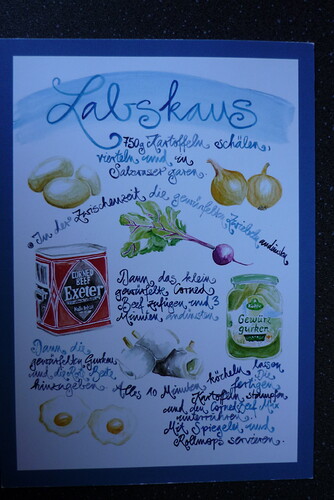 Labskaus
750g Kartoffeln schälen,
vierteln und in
Salzwasser garen.
In der Zwischenzeit die gewürfelten Zwiebeln andünsten
CORNED
BEEF
Exeter
Dann das klein
gewürfelte Corned
Beef zufügen und 3
Minuten andünsten.
Kühne
Gewürz
gurken
Dann die
gewürfelten Gurken
und die rote Bete
hinzugeben.
Alles 10 Minuten köcheln lassen.
Die fertigen
Kartoffeln stampfen
und den Corned Beef Mix
unterrühren.
Mit Spiegelei und
Rollmops servieren.